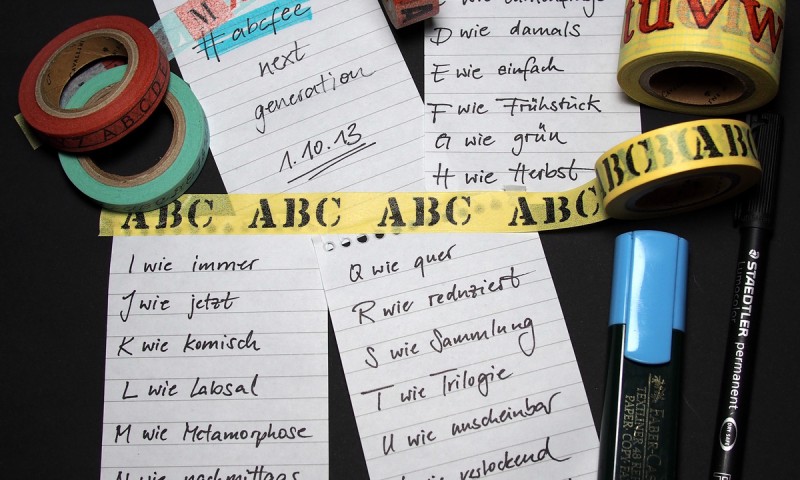 #abcfee
next
generation
1.10.13
D wie damals
E wie einfach
F wie Frühstück
G wie grün
H wie Herbst
ABC ABC ABC ABC
ABC ABC
tuvw
I wie immer
J wie jetzt
K wie komisch
L wie Labsal
M wie Metamorphose
N wie nachmittags
Q wie quer
R wie reduziert
S wie Sammlung
T wie Trilogie
U wie unscheinbar
wie verlockend
FABER-CAS
TEXTLINER 48 RE
PAPER COPY FA
STAEDTLER permanent
Lumocolor